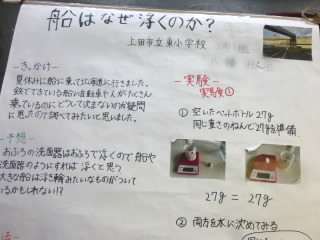 船はなぜ浮くのか？
上田市立東小学校
-きっかけ-
夏休みに船に乗って北海道に行きました。
鉄でできている船が自動車や人がたくさん
乗っているのにどうして沈まないのか疑問
に思ったので調べてみたいと思いました。
-予想-
おふろの洗面器はおふろで浮くので船や
洗面器のようにすれば浮くと思う
大きな船は浮き輪みたいなものがついて
いるかもしれない!?
-実験-
実験①
① 空いたペットボトル 27g
同じ重さのねんど 27gを準備
27g = 27g
② 両方を水に沈めてみる